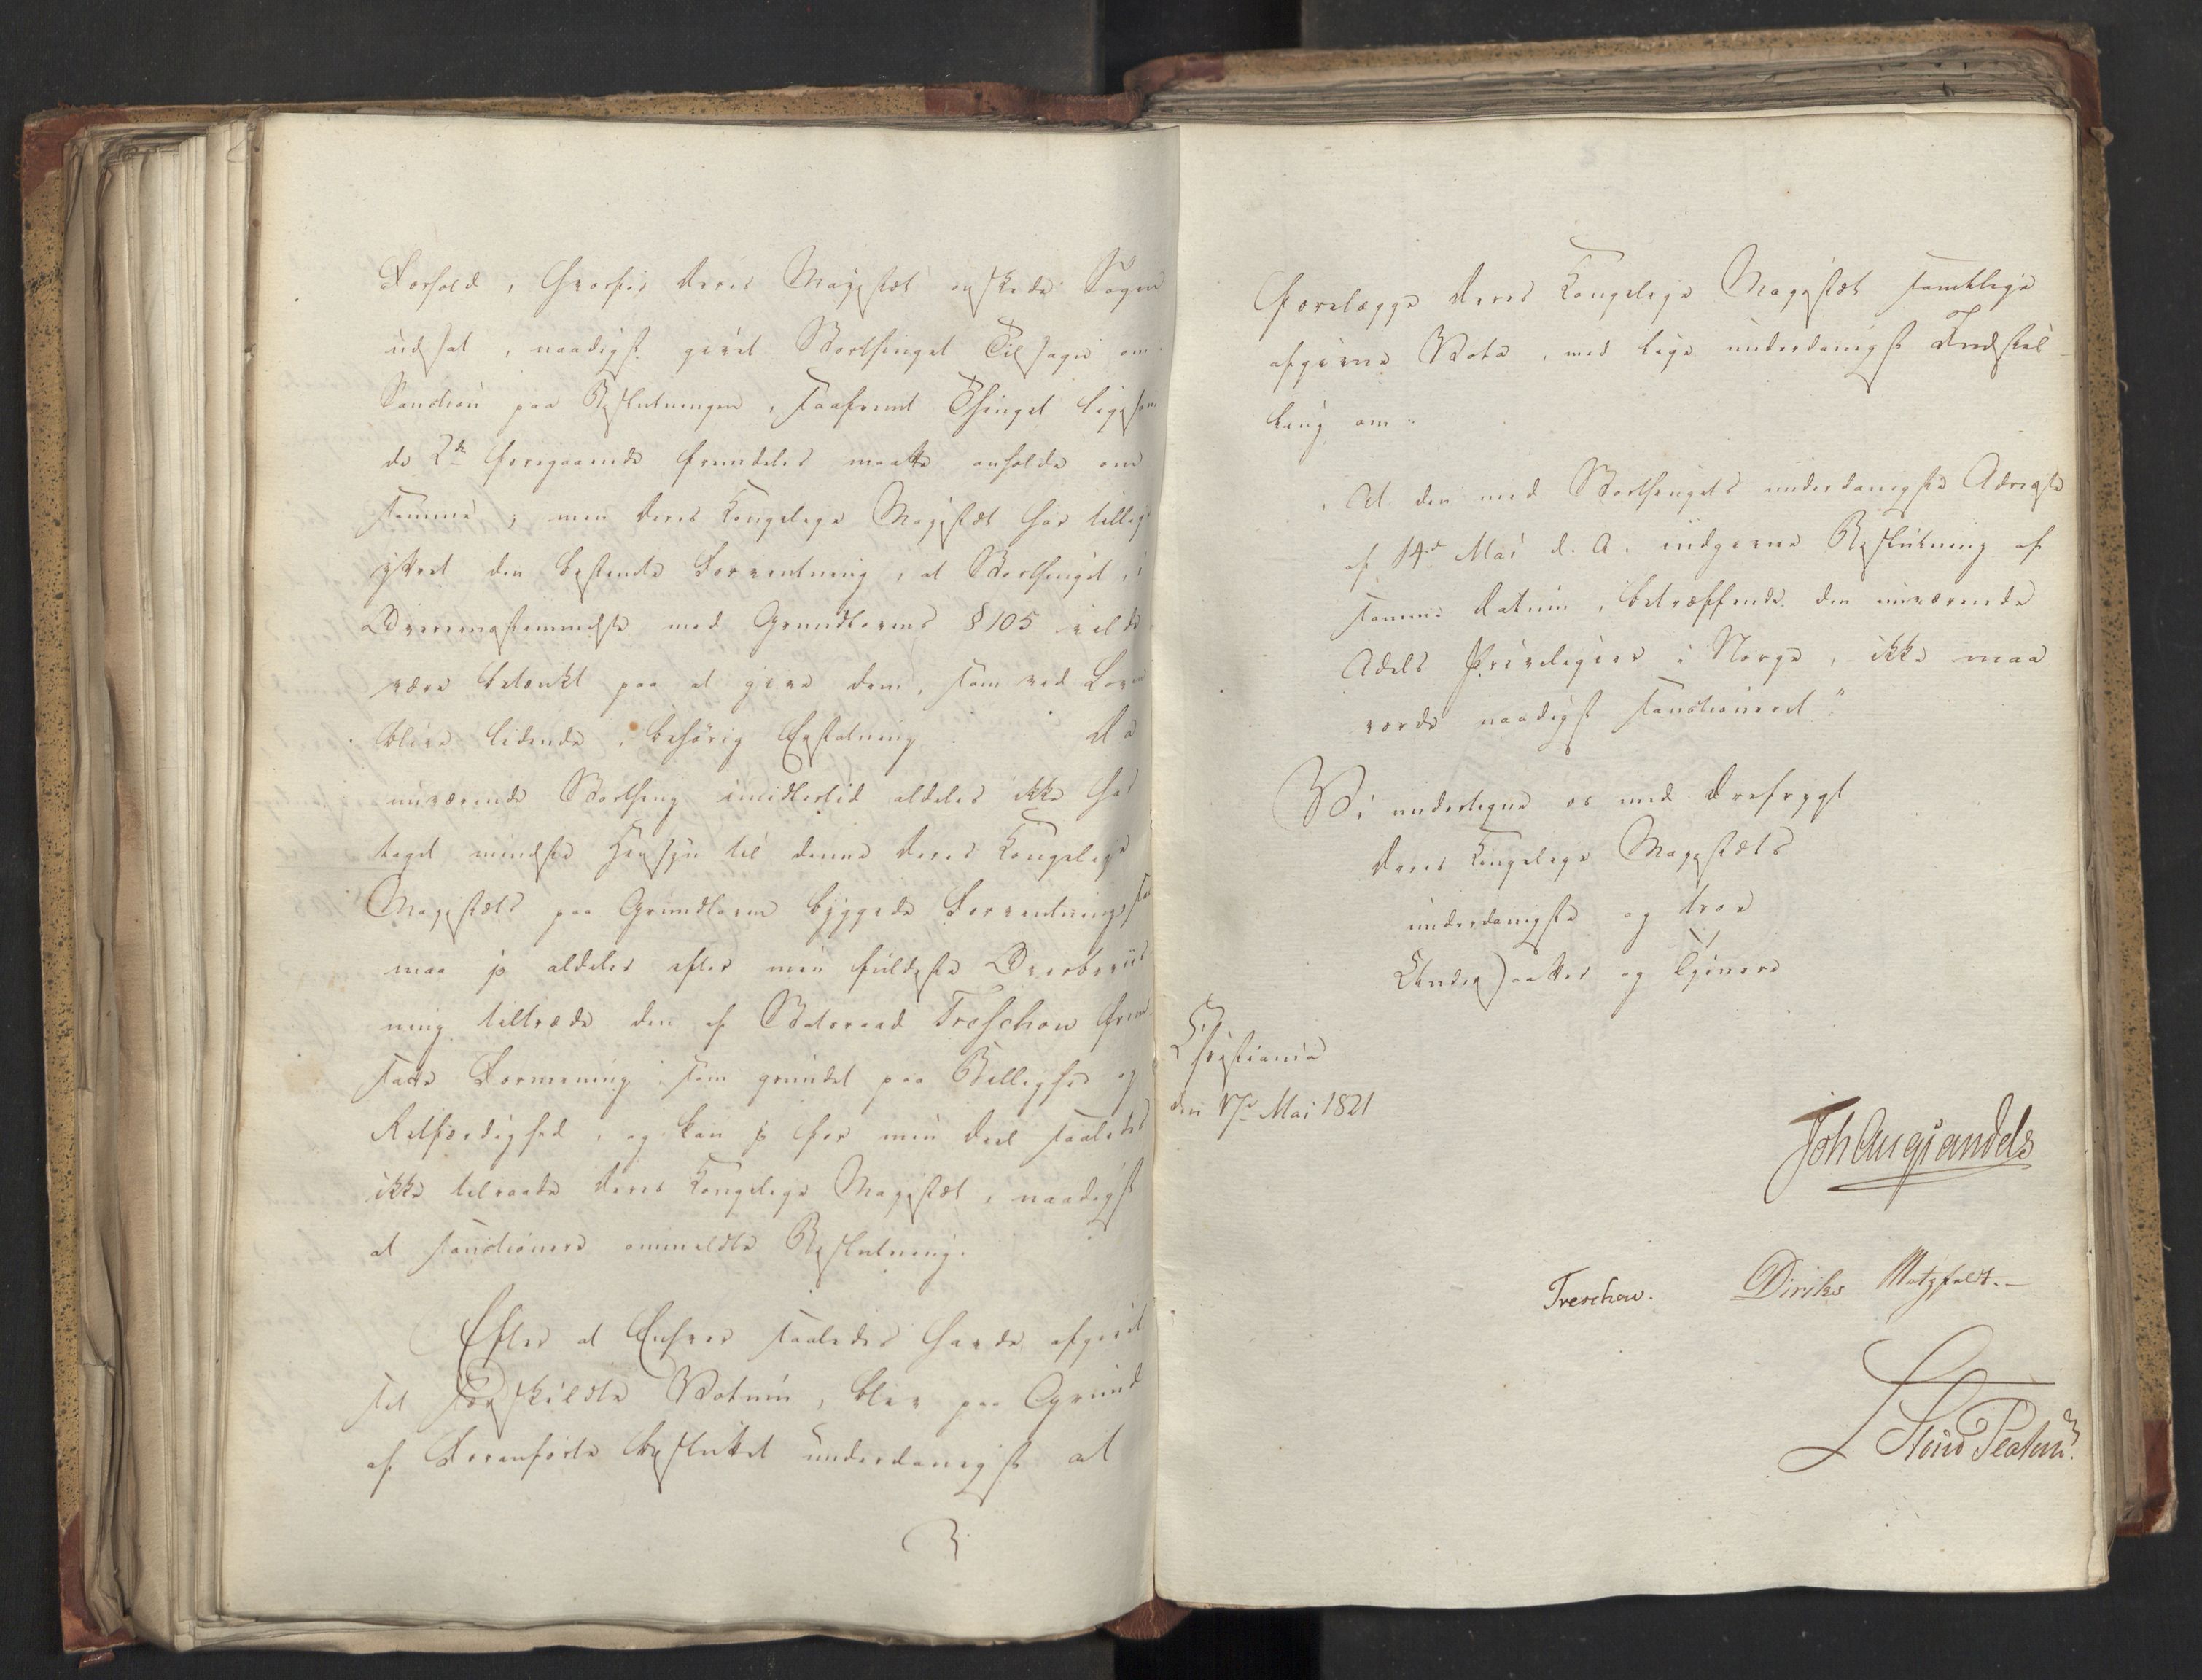 Forhold, hvorfor Deres Majestæt ønskede Sagen
udsat, naadigst givet Storthinget Tilsagn om
Sanction paa Beslutningen, saafremt Thinget ligesom
de 2de foregaaende fremdeles maatte anholde om
samme; men Deres Kongelige Majestæt har tillige
yttret den bestemte Forventning, at Storthinget, i
Overeensstemmelse med Grundlovens § 105 vilde
være betænkt paa at give dem, som ved Loven
blive lidende, behörig Erstatning. Da
nuværende Storthing imidlertid aldeles ikke har
taget mindste Hensyn til denne Deres Kongelige
Majestæts paa Grundloven byggede Forventning, saa
maa jeg aldeles efter min fuldeste Overbeviis-
ning tiltræde den af Statsraad Treschow frem-
satte Formening, som grundet paa Billighed og
Retfærdighed, og kan jeg for min Deel saaledes
ikke tilraade Deres Kongelige Majestæt, naadigst
at sanctionere ommeldte Beslutning.
Efter at Enhver saaledes havde afgivet
sit særskildte Votum, blev paa Grund
af Foranførte besluttet underdanigst at
forelægge Deres Kongelige Majestæt samtlige
afgivne Vota, med lige underdanigst Indstil-
ling om:
"At den med Storthingets underdanigste Adresse
af 14de Mai d. A. indgivne Beslutning af
samme Datum, betræffende den nuværende
Adels Privilegier i Norge, ikke maa
vorde naadigst sanctioneret"
Vi undertegne os med Ærefrygt
Deres Kongelige Majestæts
underdanigste og troe
Undersaatter og Tjenere
Christiania
den 17de Mai 1821
Joh Aug Sandels
Treschow. Diriks Motzfeldt.